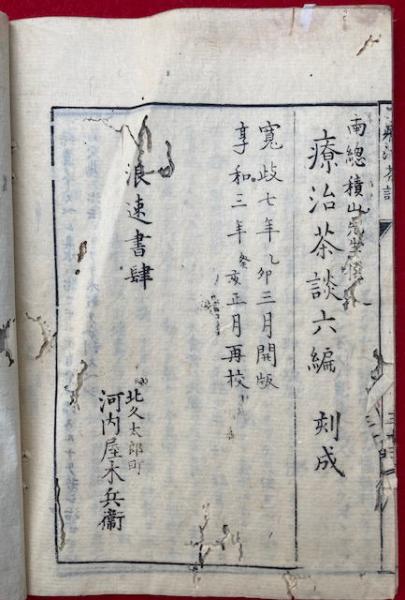 療治茶談
南總積山先生
療治茶談六編 刻成
寛政七年乙卯三月開版
享和三年癸亥正月再校
浪速書肆
北久太郎町
河内屋木兵衞